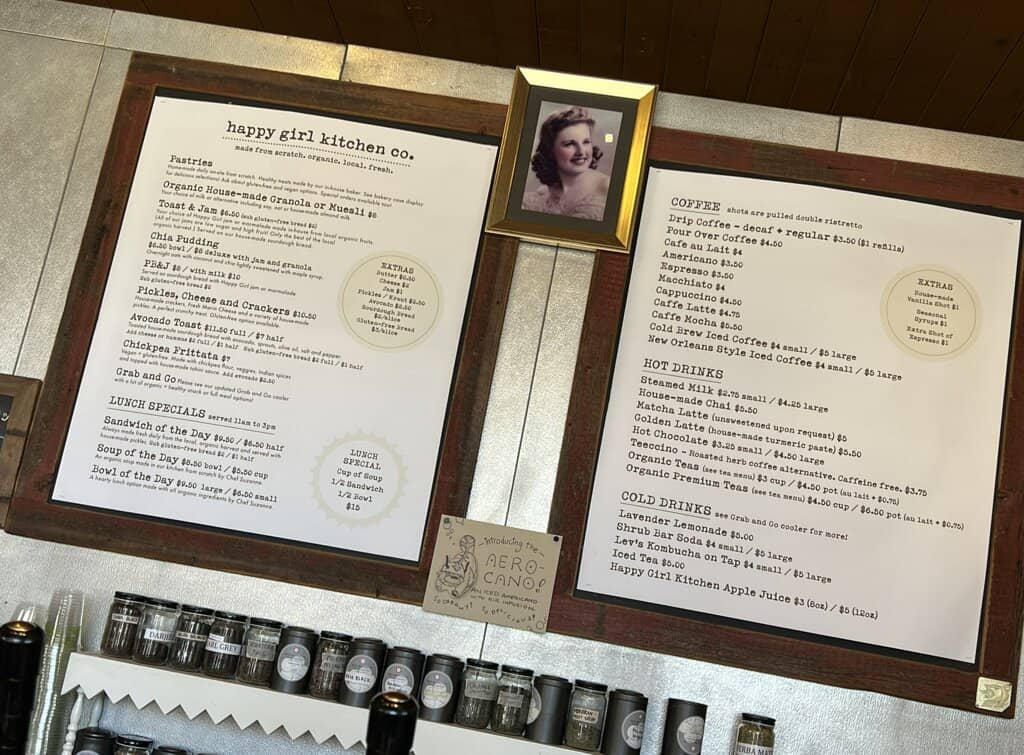 happy girl kitchen co.
made from scratch. organic. local. fresh.
Pastries
Home-made daily on-site from scratch. Healthy treats made by our in-house baker. See bakery case display
for delicious selections! Ask about gluten-free and vegan options. Special orders available too!
Organic House-made Granola or Muesli $8
Your choice of milk or alternative including soy, oat or house-made almond milk.
Toast & Jam $6.50 (sub gluten-free bread $2)
Your choice of Happy Girl jam or marmalade made in-house from local organic fruits.
(All of our jams are low sugar and high fruit! Only the best of the local
organic harvest.) Served on our house-made sourdough bread.
Chia Pudding
$6.50 bowl / $8 deluxe with jam and granola
Overnight oats with almond and chia lightly sweetened with maple syrup.
PB&J $8 / with milk $10
Served on sourdough bread with Happy Girl jam or marmalade
Sub gluten-free bread $2
Pickles, Cheese and Crackers $10.50
House-made crackers, Fresh Marin Cheese and a variety of house-made
pickles. A perfect crunchy treat. Gluten-free option available.
Avocado Toast $11.50 full / $7 half
Toasted house-made sourdough bread with avocado, sprouts, olive oil, salt and pepper.
Add cheese or hummus $2 full / $1 half Sub gluten-free bread $2 full / $1 half
Chickpea Frittata $7
Vegan + gluten-free. Made with chickpea flour, veggies, Indian spices
and topped with house-made tahini sauce. Add avocado $2.50
Grab and Go Please see our updated Grab and Go cooler
with a lot of organic + healthy snack or full meal options!
EXTRAS
Butter $0.50
Cheese $2
Jam $1
Pickles / Kraut $2.50
Avocado $2.50
Sourdough Bread
$2/slice
Gluten-free bread
$3/slice
LUNCH SPECIALS served 11am to 3pm
Sandwich of the Day $9.50 / $6.50 half
Always made fresh daily from the local, organic harvest and served with
house-made pickles. Sub gluten-free bread $2 / $1 half
Soup of the Day $8.50 bowl / $5.50 cup
An organic soup made in our kitchen from scratch by Chef Suzanne.
Bowl of the Day $9.50 large / $6.50 small
A hearty lunch option made with all organic ingredients by Chef Suzanne.
LUNCH
SPECIAL
Cup of Soup
1/2 Sandwich
1/2 Bowl
$15
Introducing the
AERO-
CANO!
AN ICED AMERICANO
WITH AIR INFUSION
COFFEE shots are pulled double ristretto
Drip Coffee - decaf + regular $3.50 ($1 refills)
Pour Over Coffee $4.50
Cafe au Lait $4
Americano $3.50
Espresso $3.50
Macchiato $4
Cappuccino $4.50
Caffe Latte $4.75
Caffe Mocha $5.50
Cold Brew Iced Coffee $4 small / $5 large
New Orleans Style Iced Coffee $4 small / $5 large
EXTRAS
House-made
Vanilla Shot $1
Seasonal
Syrups $1
Extra Shot of
Espresso $1
HOT DRINKS
Steamed Milk $2.75 small / $4.25 large
House-made Chai $5.50
Matcha Latte (unsweetened upon request) $5
Golden Latte (house-made turmeric paste) $5.50
Hot Chocolate $3.25 small / $4.50 large
Teeccino - Roasted herb coffee alternative. Caffeine free. $3.75
Organic Teas (see tea menu) $3 cup / $4.50 pot (au lait + $0.75)
Organic Premium Teas (see tea menu) $4.50 cup / $6.50 pot (au lait + $0.75)
COLD DRINKS see Grab and Go cooler for more!
Lavender Lemonade $5.00
Shrub Bar Soda $4 small / $5 large
Lev's Kombucha on Tap $4 small / $5 large
Iced Tea $5.00
Happy Girl Kitchen Apple Juice $3 (8oz) / $5 (12oz)
EARL GREY